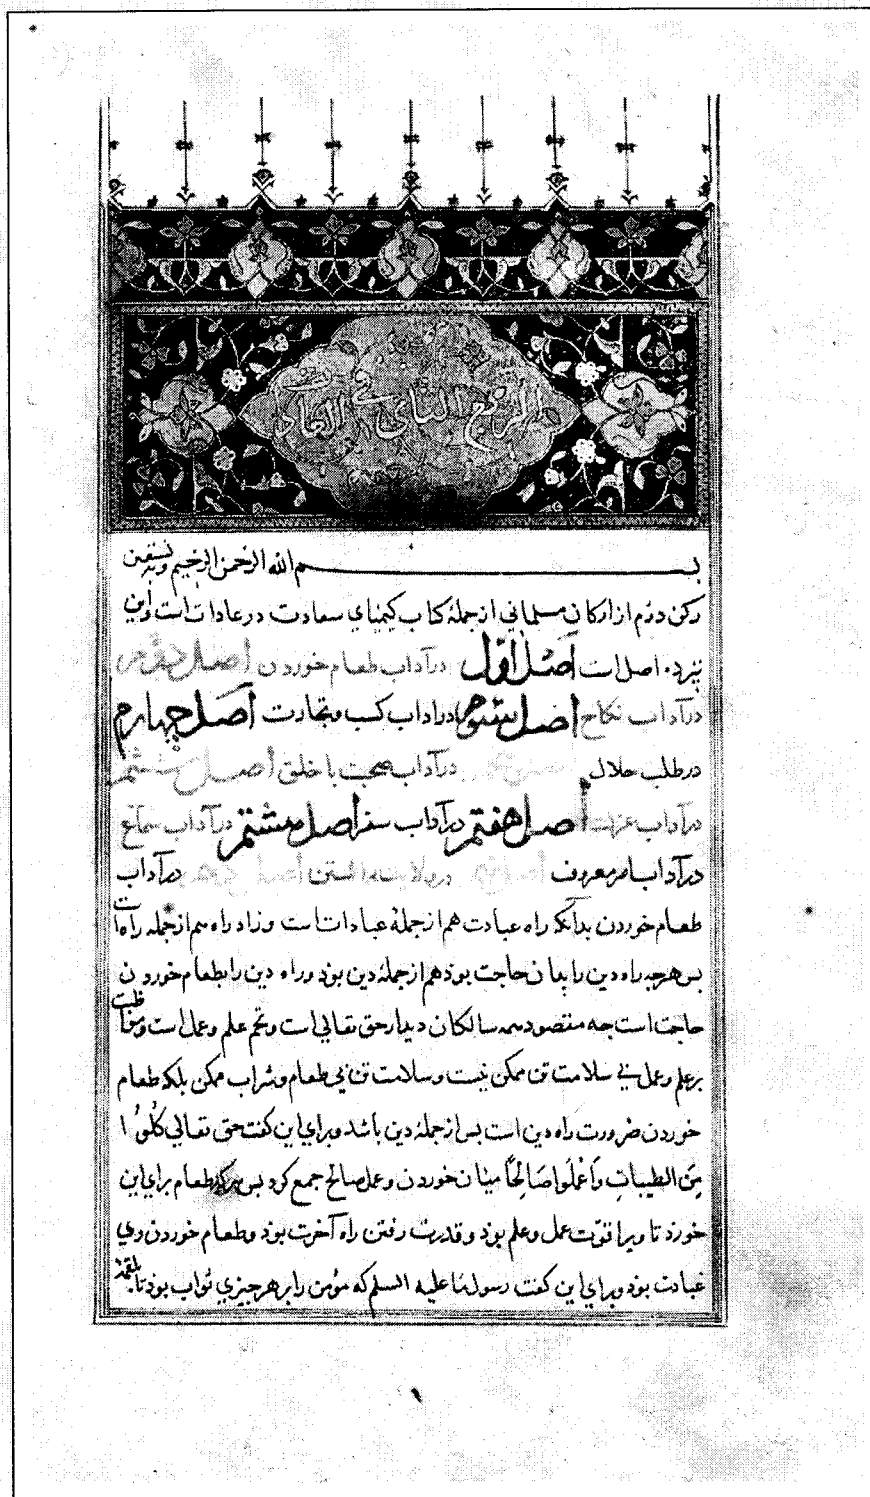 الربع الثانی فی العادات
بسم الله الرحمن الرحیم وبه نستعین
رکن دوم از ارکان مسلمانی از جملهٔ کتاب کیمیای سعادت در عادات است و این
نیز ده اصل است اصل اول در آداب طعام خوردن اصل دوم
در آداب نکاح اصل سوم در آداب کسب و تجارت اصل چهارم
در طلب حلال در آداب صحبت با خلق اصل ششم
در آداب عزلت اصل هفتم در آداب سفر اصل هشتم در آداب سماع
در آداب امر معروف در ولایت داشتن در آداب
طعام خوردن بدانکه راه عبادت هم از جملهٔ عبادات است و زاد راه هم از جمله راه است
بس هرجه راه دین را بدان حاجت بوذ هم از جملهٔ دین بوذ و راه دین را بطعام خوردن
حاجت است جه مقصود همه سالکان دیدار حق تعالی است و تخم علم و عمل است و مواظبت
بر علم و عمل بی سلامت تن ممکن نیست و سلامت تن بی طعام و شراب ممکن بلکه طعام
خوردن ضرورت راه دین است بس از جملهٔ دین باشد و برای این کفت حق تعالی کُلُوا
مِنَ الطیباتِ وَاعْمَلُوا صَالِحًا میان خوردن و عمل صالح جمع کرد بس هرکه طعام برای این
خورد تا ویرا قوّت عمل و علم بوذ و قدرت رفتن راه آخرت بوذ و طعام خوردن وی
عبادت بوذ و برای این کفت رسول ما علیه السلم که مؤمن را بر هر جیزی ثواب بوذ تا بلقمهٔ
۱